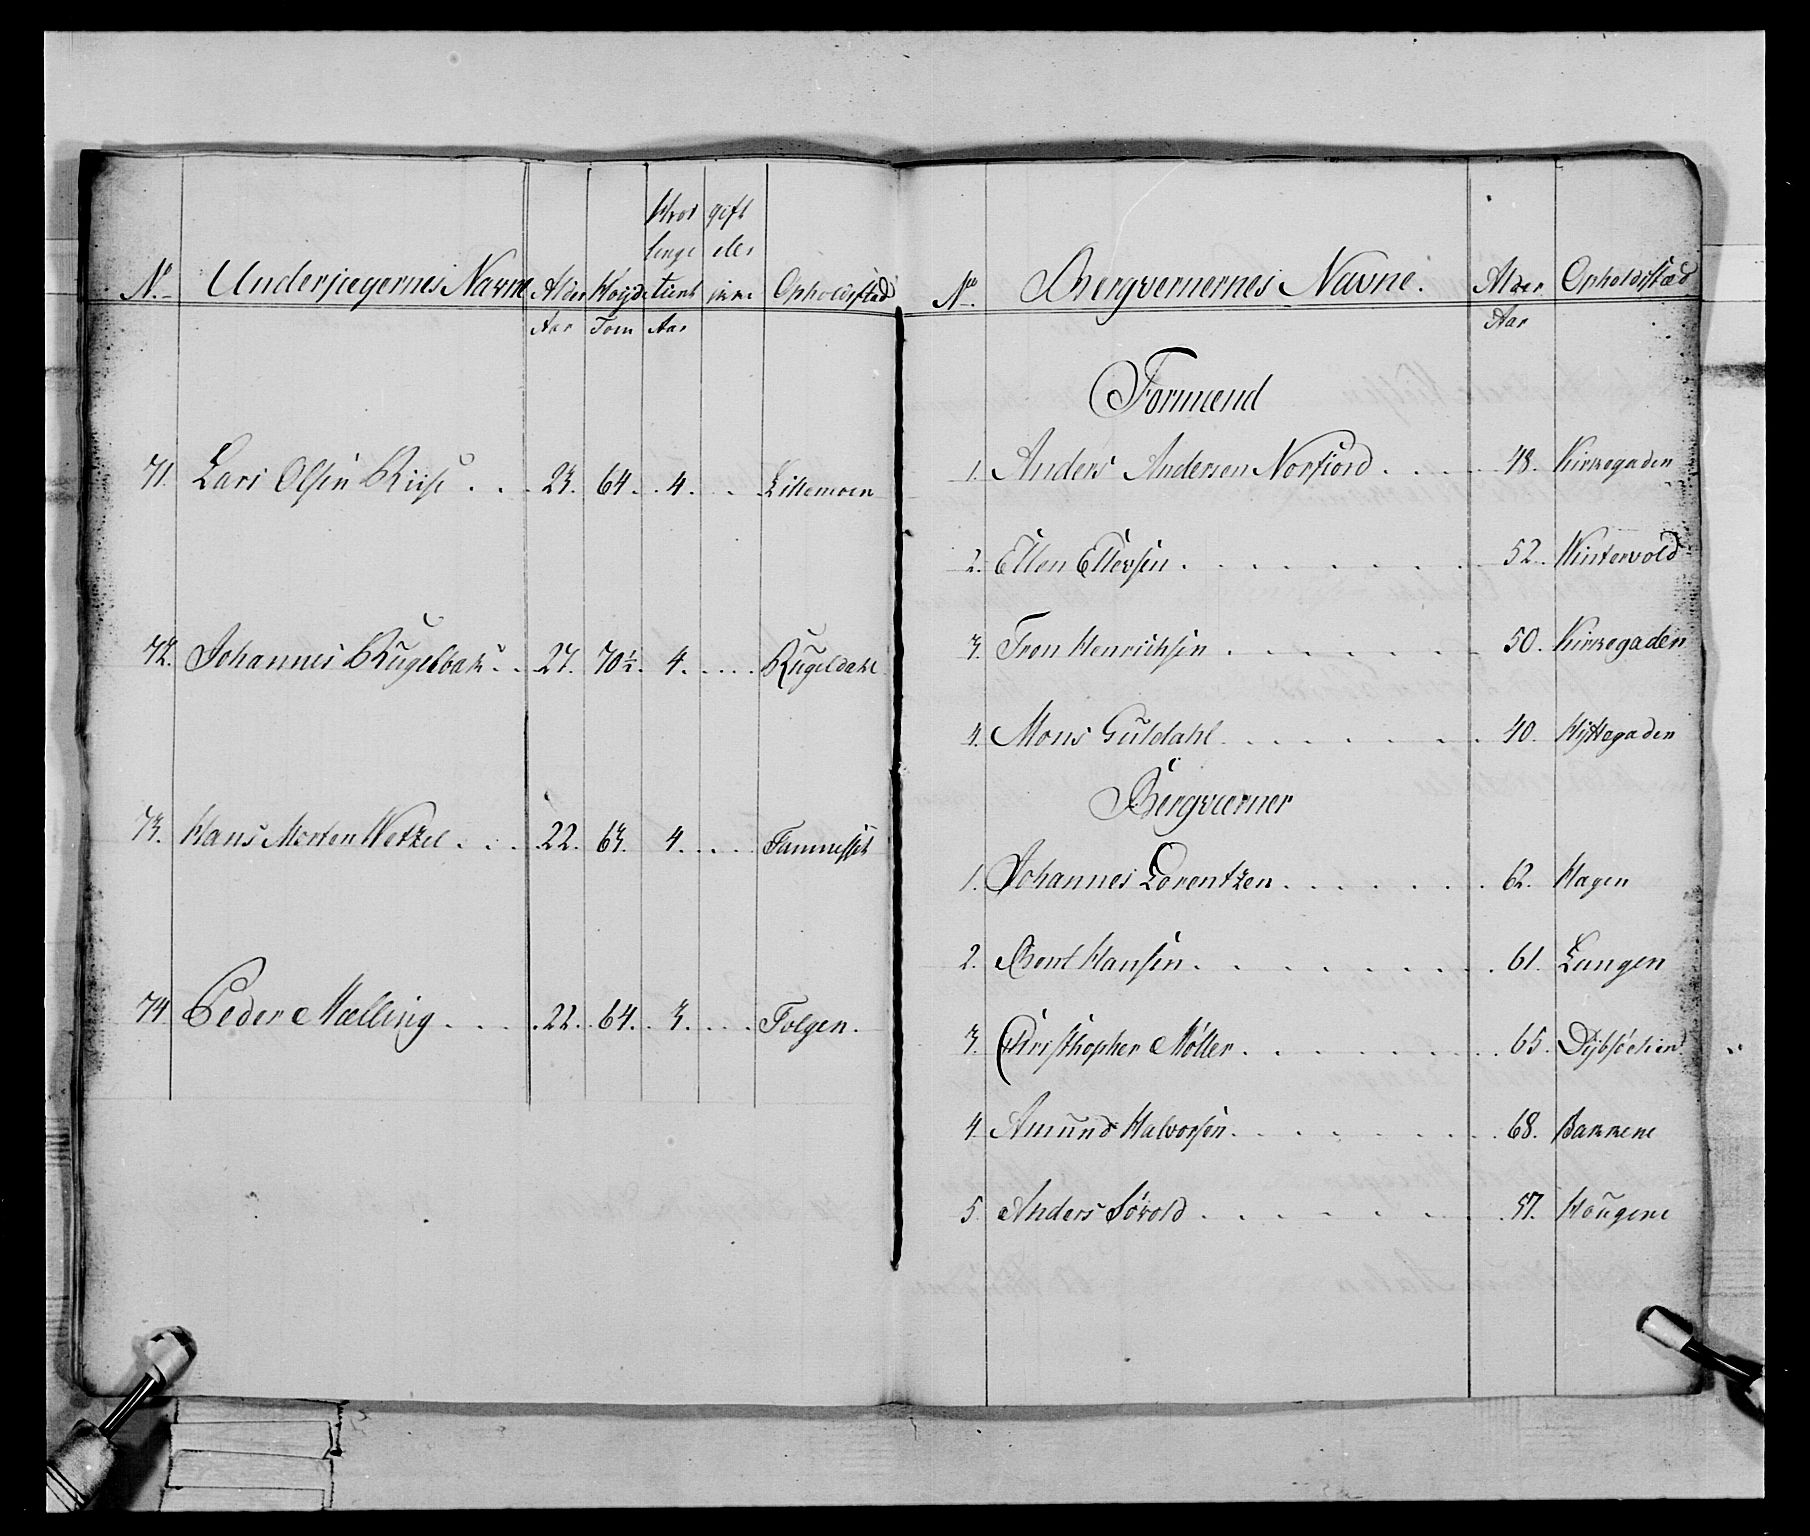 Hvor gift
lenge eller
No. Underjægernes Navne Alder Høyde tient ikke Opholdsstæd
Aar Tom Aar
71. Lars Olsen Riise . . . 23. 64. . 4. . . Lillemoen
72. Johannes Rugelbak . . 27. 70½. 4. . . . . Rugeldahl
73. Hans Morten Wetzel . . . . 22. 63. 4. . . . Tamnesset
74. Peder Mælling . . . . 22. 64. . 3. . . . Tolgen.
No. Bergvernernes Navne. Alder Opholdsstæd
Aar
Formænd
1. Anders Andersen Norfiord . . . . 48. Kirkegaden
2. Ellen Ellevsen . . . . . . . . . 52. Wintervold
3. Tron Henrichsen . . . . . . . . 50. Kirkegaden
4. Mons Guldahl . . . . . . . . 40. Hyttegaden
Bergværner
1. Johannes Lorentzen . . . . . . . 62. Hagen
2. Bent Hansen . . . . . . . . . 61. Langen
3. Christhopher Møller . . . . . . . . 65.
4. Amund Halvorsen . . . . . . . . 68. Bakkene
5. Anders Søvold . . . . . . . . 57. Haugene